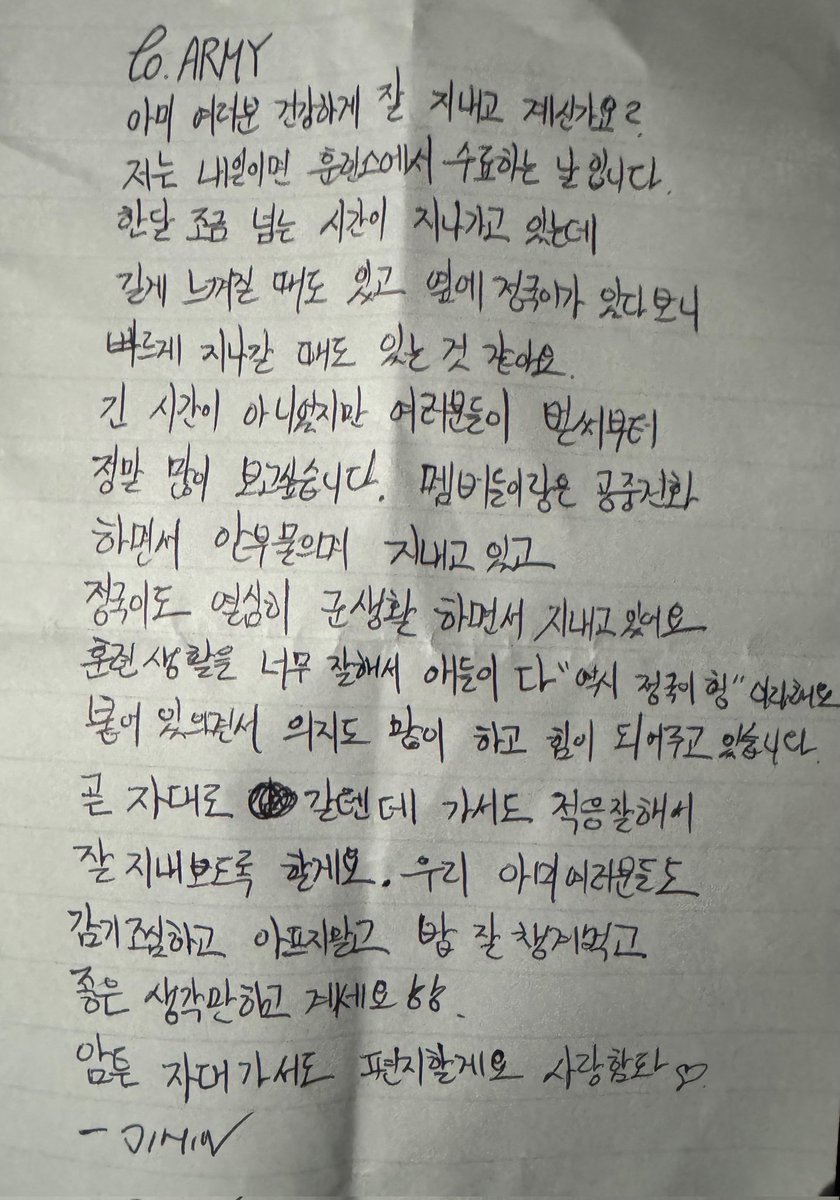 To. ARMY
아미 여러분 건강하게 잘 지내고 계신가요?
저는 내일이면 훈련소에서 수료하는 날입니다.
한달 조금 넘는 시간이 지나가고 있는데
길게 느껴질 때도 있고 옆에 정국이가 있다보니
빠르게 지나갈 때도 있는 것 같아요.
긴 시간이 아니었지만 여러분들이 벌써부터
정말 많이 보고싶습니다. 멤버들이랑은 공중전화
하면서 안부물으며 지내고 있고
정국이도 열심히 군생활 하면서 지내고 있어요
훈련생활을 너무 잘해서 애들이 다 "역시 정국이 형" 이라해요
붙어 있으면서 의지도 많이 하고 힘이 되어주고 있습니다.
곧 자대로 갈텐데 가서도 적응잘해서
잘 지내보도록 할게요. 우리 아미여러분들도
감기조심하고 아프지말고 밥 잘 챙겨먹고
좋은 생각만하고 계세요
암튼 자대가서도 편지할게요 사랑함돠 ♡
- JIMIN